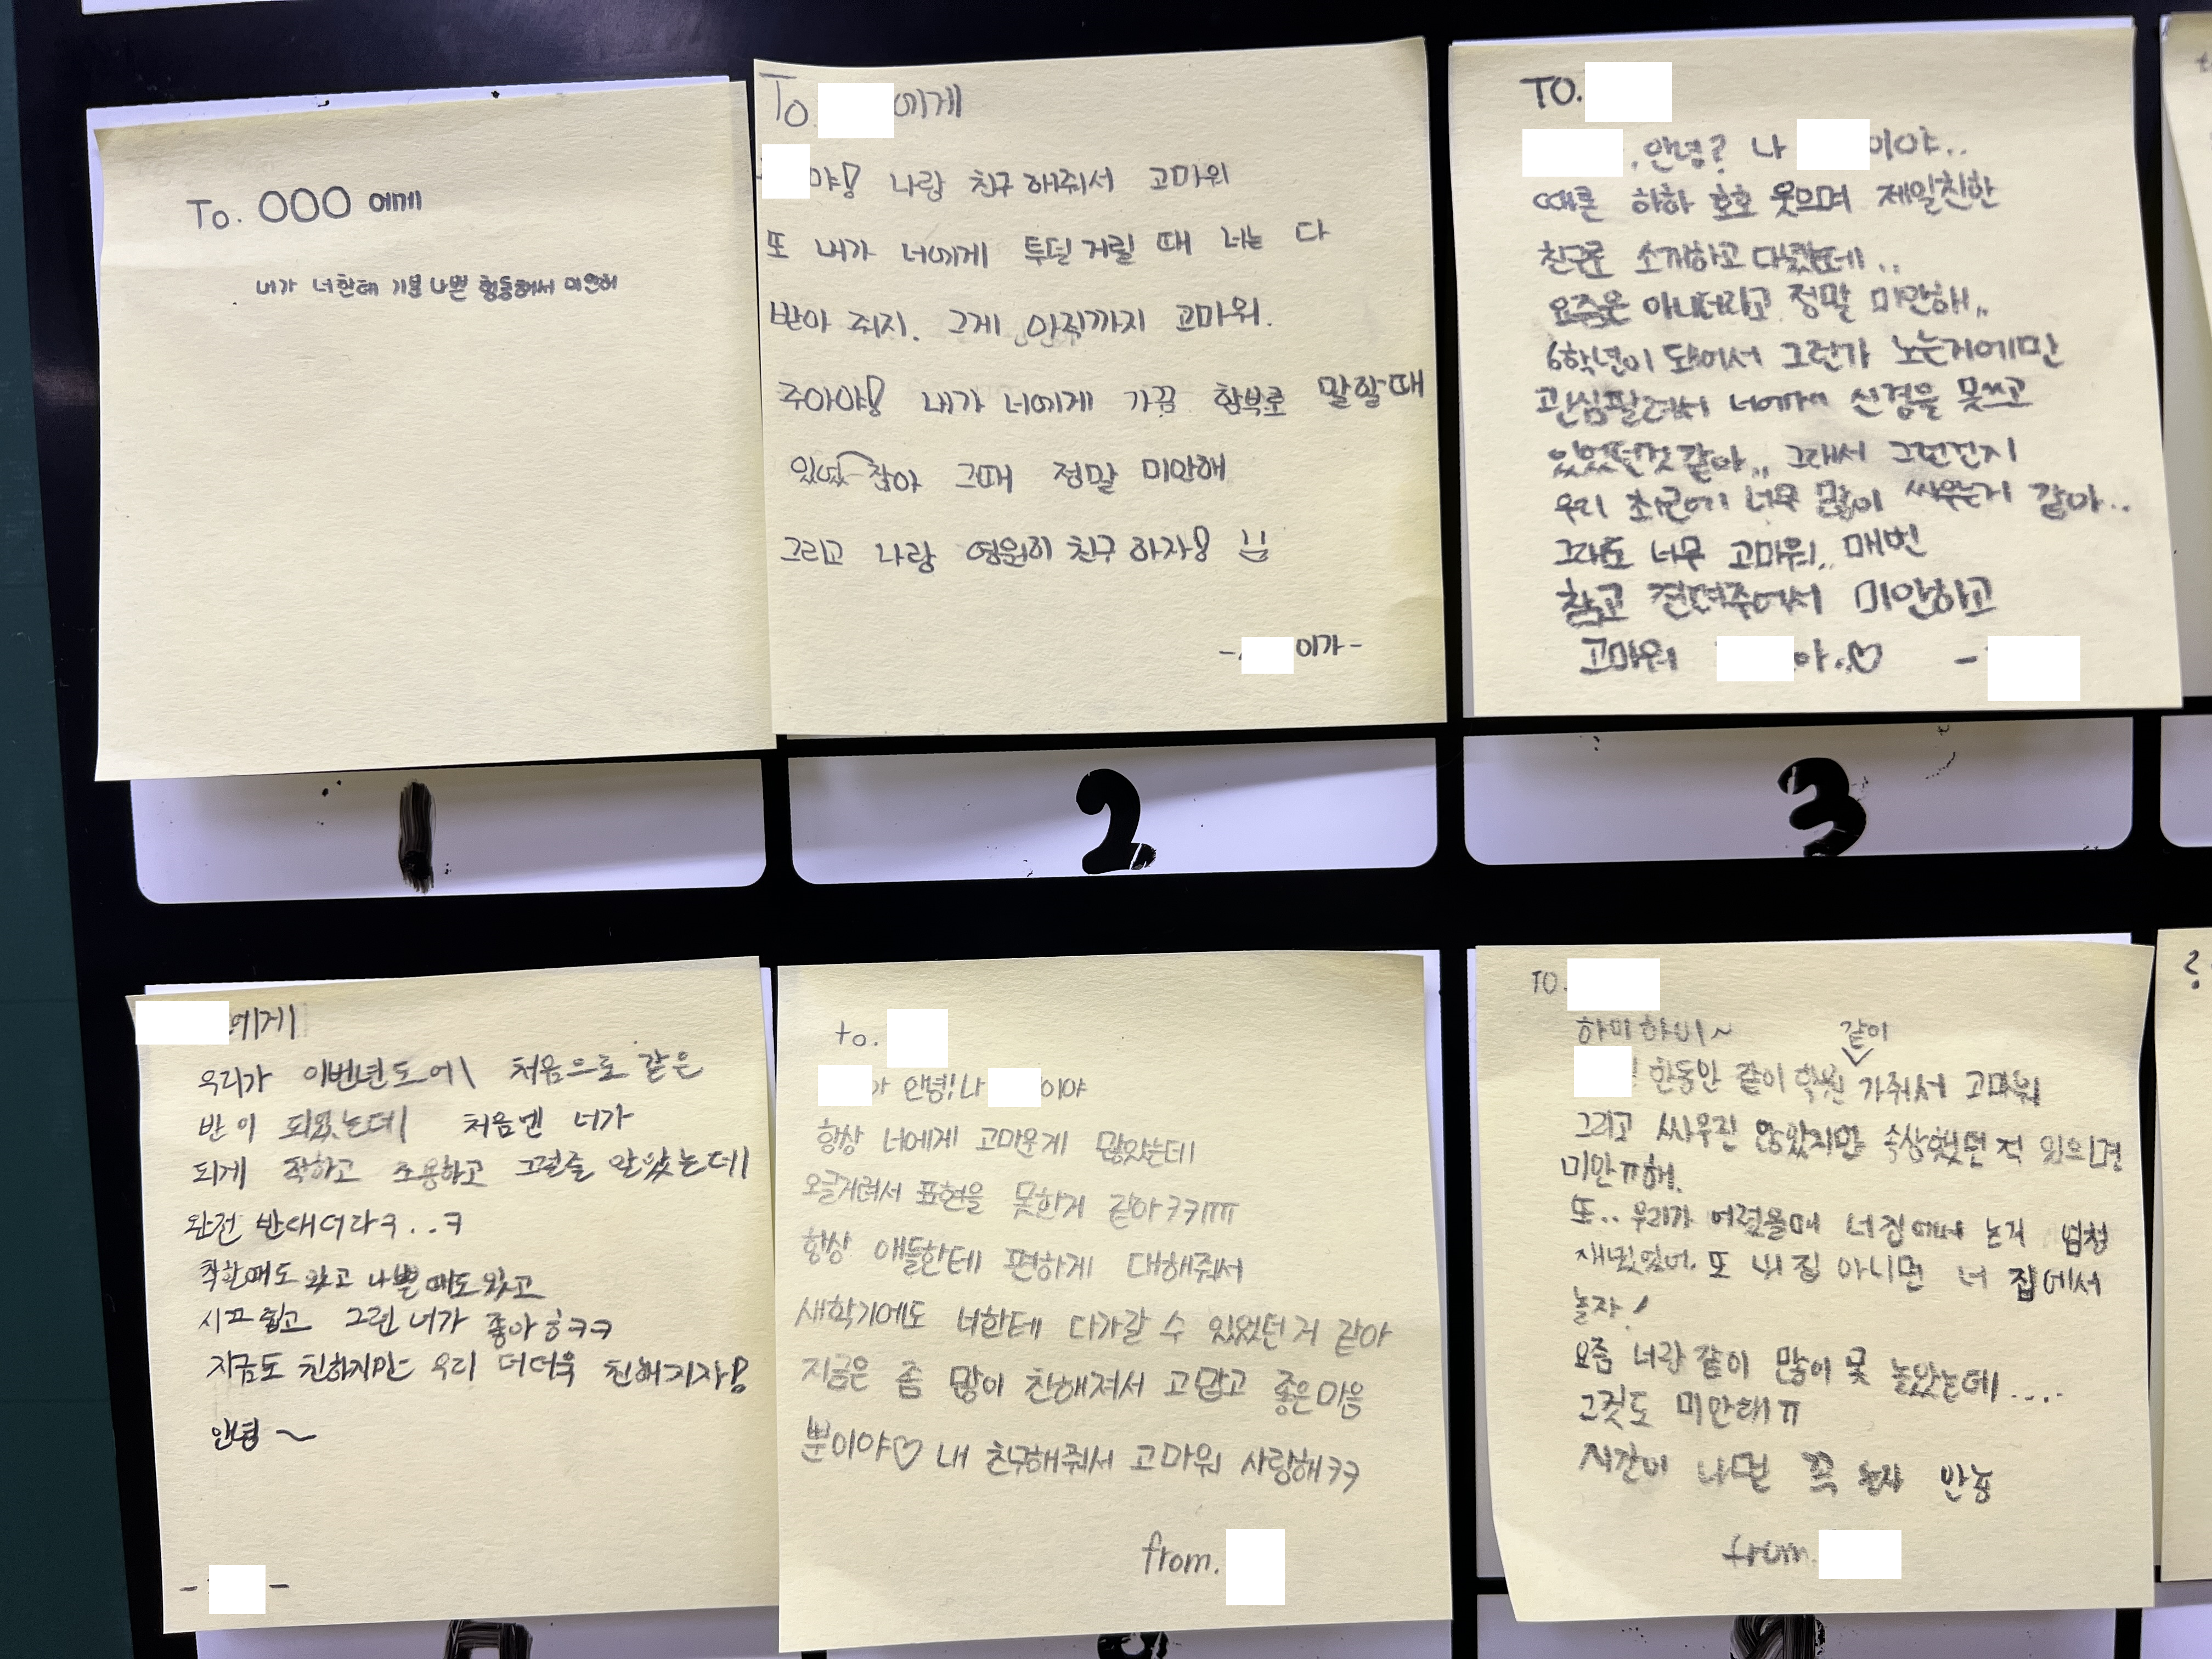 To. OOO 에게
내가 너한테 기분 나쁜 행동해서 미안해
To. 에게
야! 나랑 친구 해줘서 고마워
또 내가 너에게 투덜거릴 때 너는 다
받아 줘지. 그게 아직까지 고마워.
주아야! 내가 너에게 가끔 함부로 말할때
있었잖아 그때 정말 미안해
그리고 나랑 영원히 친구 하자!
- 이가-
TO.
, 안녕? 나 이야..
때론 하하 호호 웃으며 제일친한
친구로 소개하고 다녔는데..
요즘은 아니더라고 정말 미안해..
6학년이 되어서 그런가 노는거에만
관심팔려서 너에게 신경을 못쓰고
있었던것같아.. 그래서 그런건지
우리 초근에 너무 많이 싸우는거 같아..
그래도 너무 고마워.. 매번
참고 견뎌주어서 미안하고
고마워 아..♡ -
1
2
3
에게
우리가 이번년도에 처음으로 같은
반이 되었는데 처음엔 너가
되게 착하고 조용하고 그럴줄 알았는데
완전 반대더라ㅋ..ㅋ
착한때도 있고 나쁠때도 있고
시끄럽고 그런 너가 좋아ㅎㅋㅋ
지금도 친하지만 우리 더더욱 친해지자!
안녕~
- -
to.
가 안녕! 나 이야
항상 너에게 고마운게 많았는데
오글거려서 표현을 못한거 같아ㅋㅋㅠㅠ
항상 애들한테 편하게 대해줘서
새학기에도 너한테 다가갈 수 있었던거 같아
지금은 좀 많이 친해져서 고맙고 좋은마음
뿐이야♡ 내 친구해줘서 고마워 사랑해ㅋㅋ
from.
TO.
하이하이~
한동안 같이 학원 같이 가줘서 고마워
그리고 싸우진 않았지만 속상했던 적 있으면
미안ㅠ해.
또.. 우리가 어렸을때 너집에서 논거 엄청
재밌었어. 또 내 집 아니면 너 집에서
놀자!
요즘 너랑 같이 많이 못 놀았는데....
그것도 미안해ㅠ
시간이 나면 꼭 놀자 안뇽
from.
?